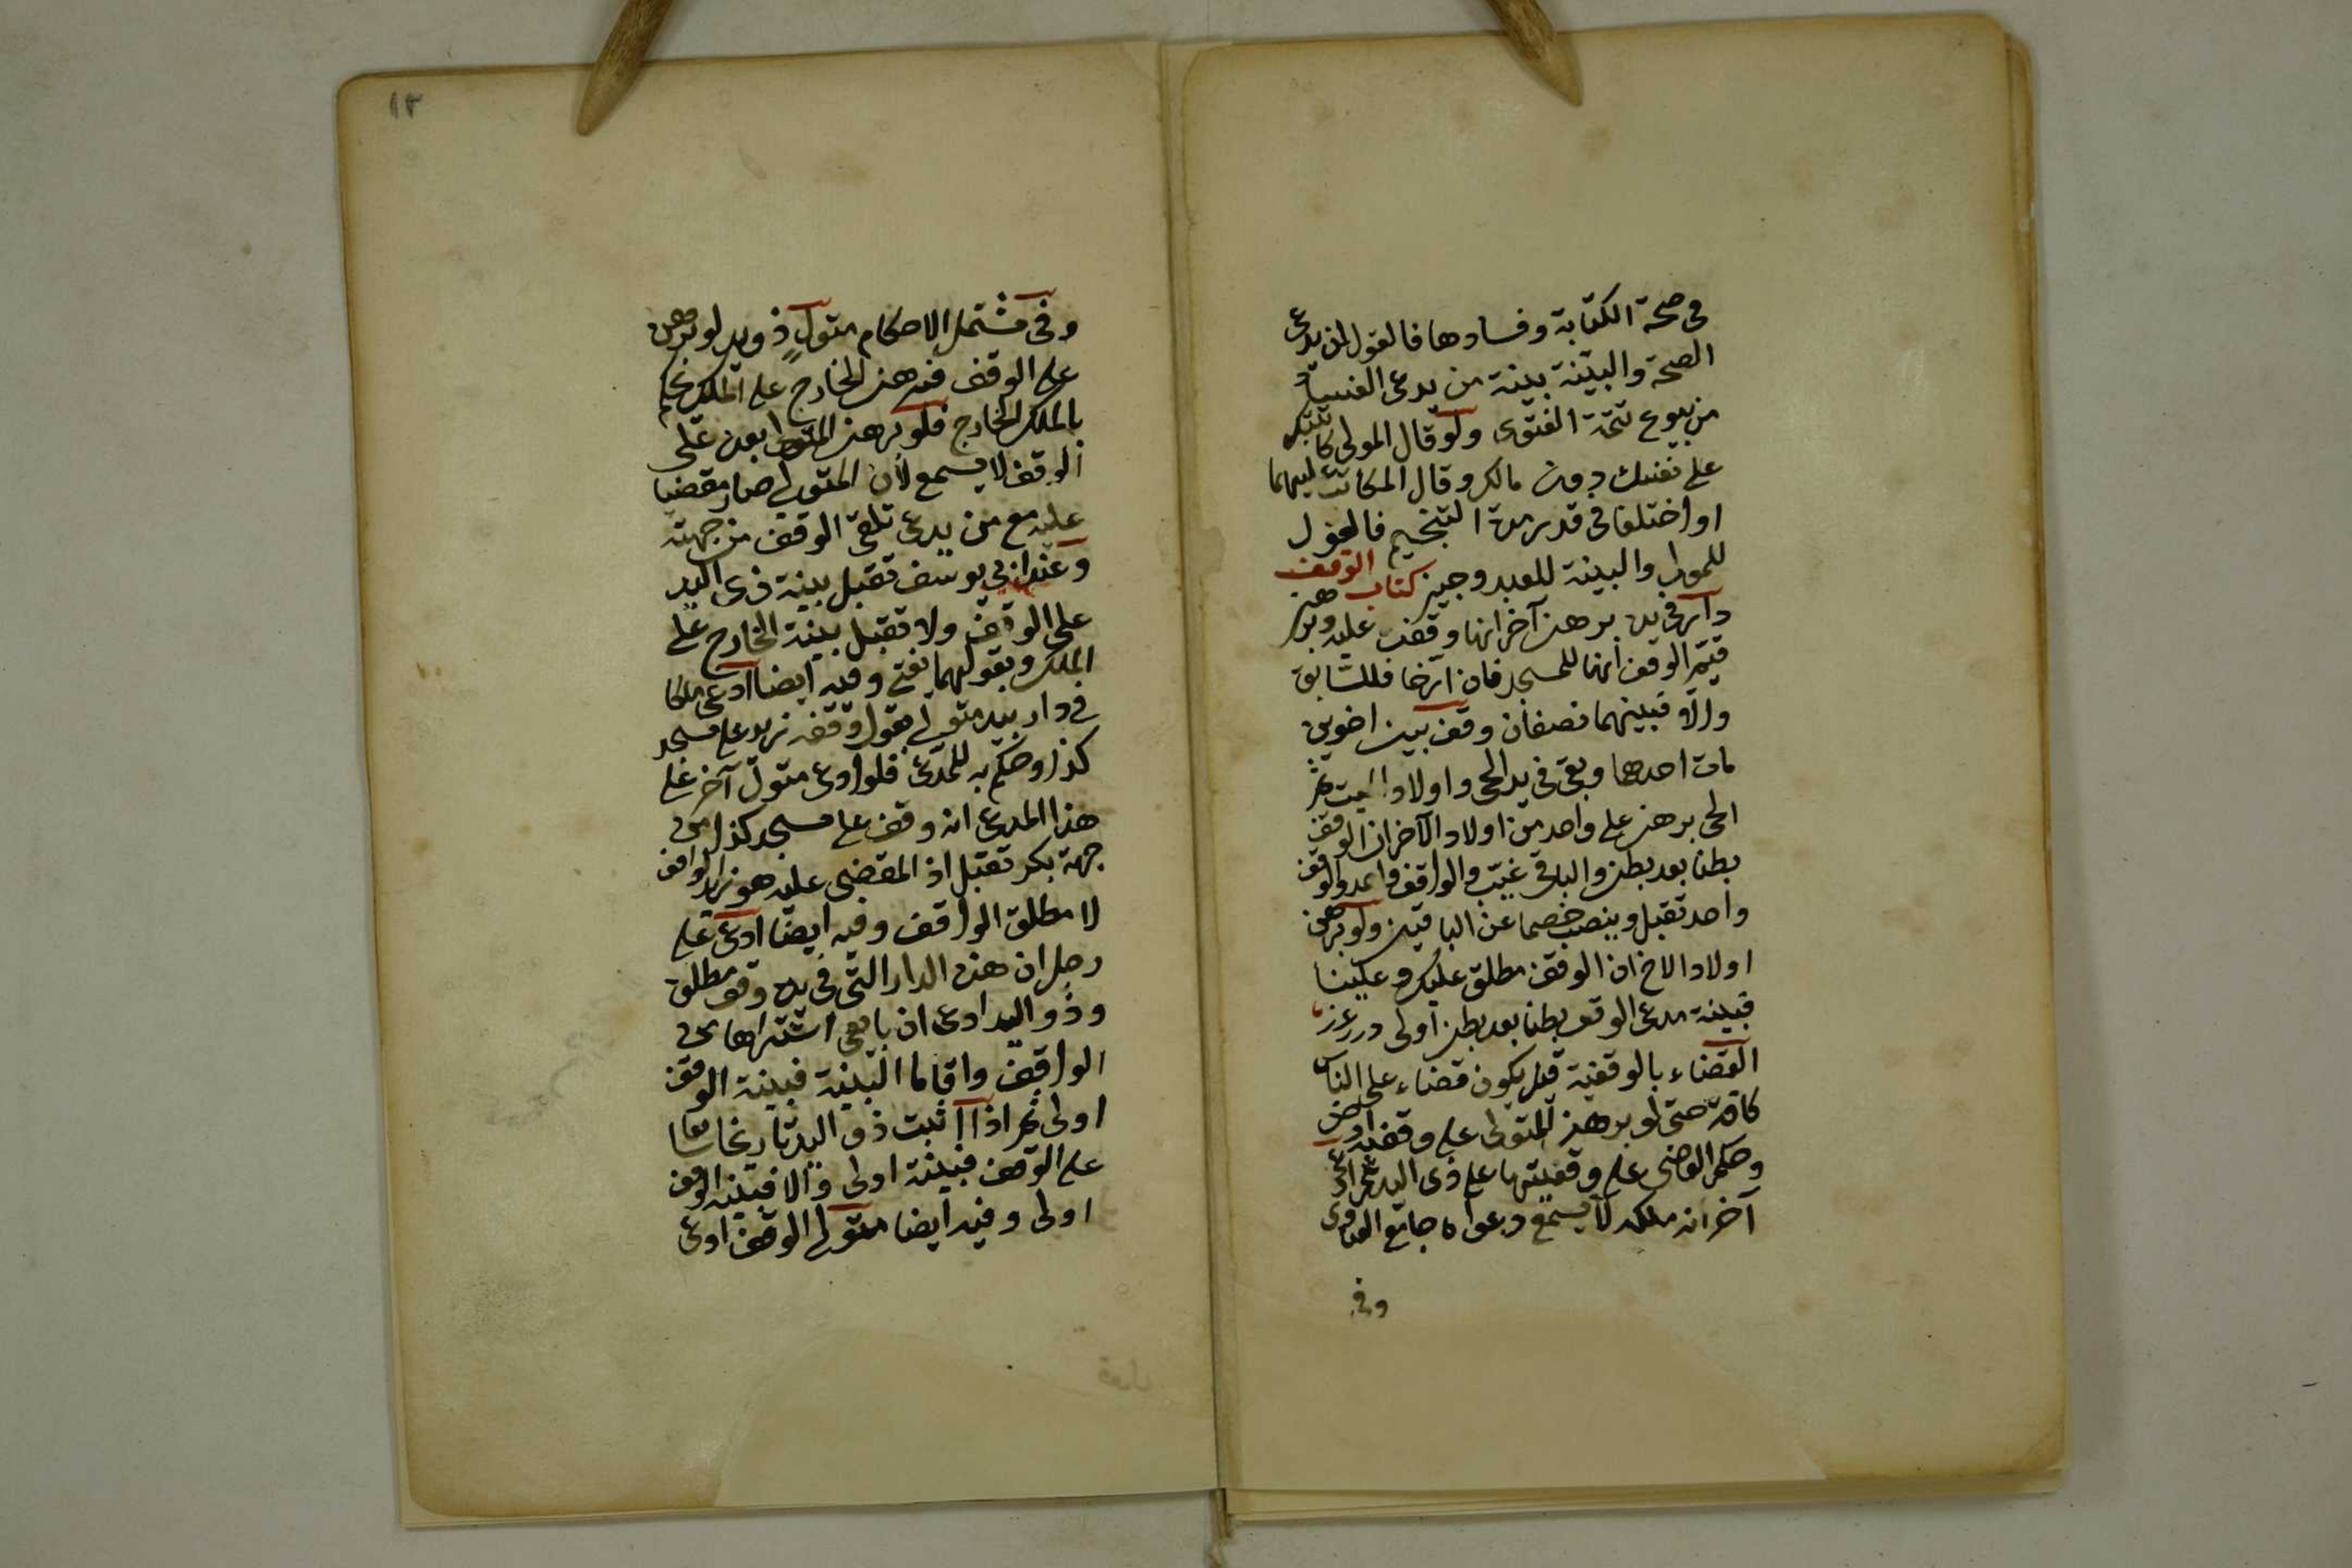 فى صحة الكتابة وفسادها فالقول لمن يدعى
الصحة والبينة بينة من يدعى الفساد
من بيوع تتمة الفتوى ولو قال المولى كاتبتك
على نفسك دون مالك وقال المكاتب عليهما
او اختلفا فى قدر مدة التنجيم فالقول
للمولى والبينة للعبد وجيز كتاب الوقف
دار فى يده برهن آخر انها وقف عليه وبرهن
قيم الوقف انها للمسجد فان ارخا فللسابق
والا فبينهما نصفان وقف بين اخوين
مات احدهما وبقى فى يد الحى واولاد الميت ثم
الحى برهن على واحد من اولاد الآخر ان الوقف
بطنا بعد بطن والباقى غيب والواقف واحد والوقف
واحد تقبل وينصب خصما عن الباقين ولو برهن
اولاد الاخ ان الوقف مطلق عليك وعلينا
فبينة مدعى الوقف بطنا بعد بطن اولى درر غرر
القضاء بالوقفية قيل يكون قضاء على الناس
كافة حتى لو برهن المتولى على وقفية ارض
وحكم القاضى على وقفيتها على ذى اليد ثم ادعى
آخر انه ملكه لا يسمع دعواه جامع الفتاوى
وفى
١٣
وفى مشتمل الاحكام متول ذو يد لو برهن
على الوقف فبرهن الخارج على الملك يحكم
بالملك للخارج فلو برهن المتولى بعده على
الوقف لا يسمع لان المتولى صار مقضيا
عليه مع من يدعى تلقى الوقف من جهته
وعند ابى يوسف تقبل بينة ذى اليد
على الوقف ولا تقبل بينة الخارج على
الملك وبقولهما يفتى وفيه ايضا ادعى ملكا
فى دار بيد متولى يقول وقفه زيد على مسجد
كذا وحكم به للمدعى فلو ادعى متول آخر على
هذا المدعى انه وقف على مسجد كذا من
جهة بكر تقبل اذ المقضى عليه هو زيد الواقف
لا مطلق الواقف وفيه ايضا ادعى على
رجل ان هذه الدار التى فى يده وقف مطلق
وذو اليد ادعى ان بايعى اشتراها من
الواقف واقاما البينة فبينة الوقف
اولى ثم اذا اثبت ذو اليد تاريخا سابقا
على الوقف فبينته اولى والا فبينة الوقف
اولى وفيه ايضا متولى الوقف ادعى